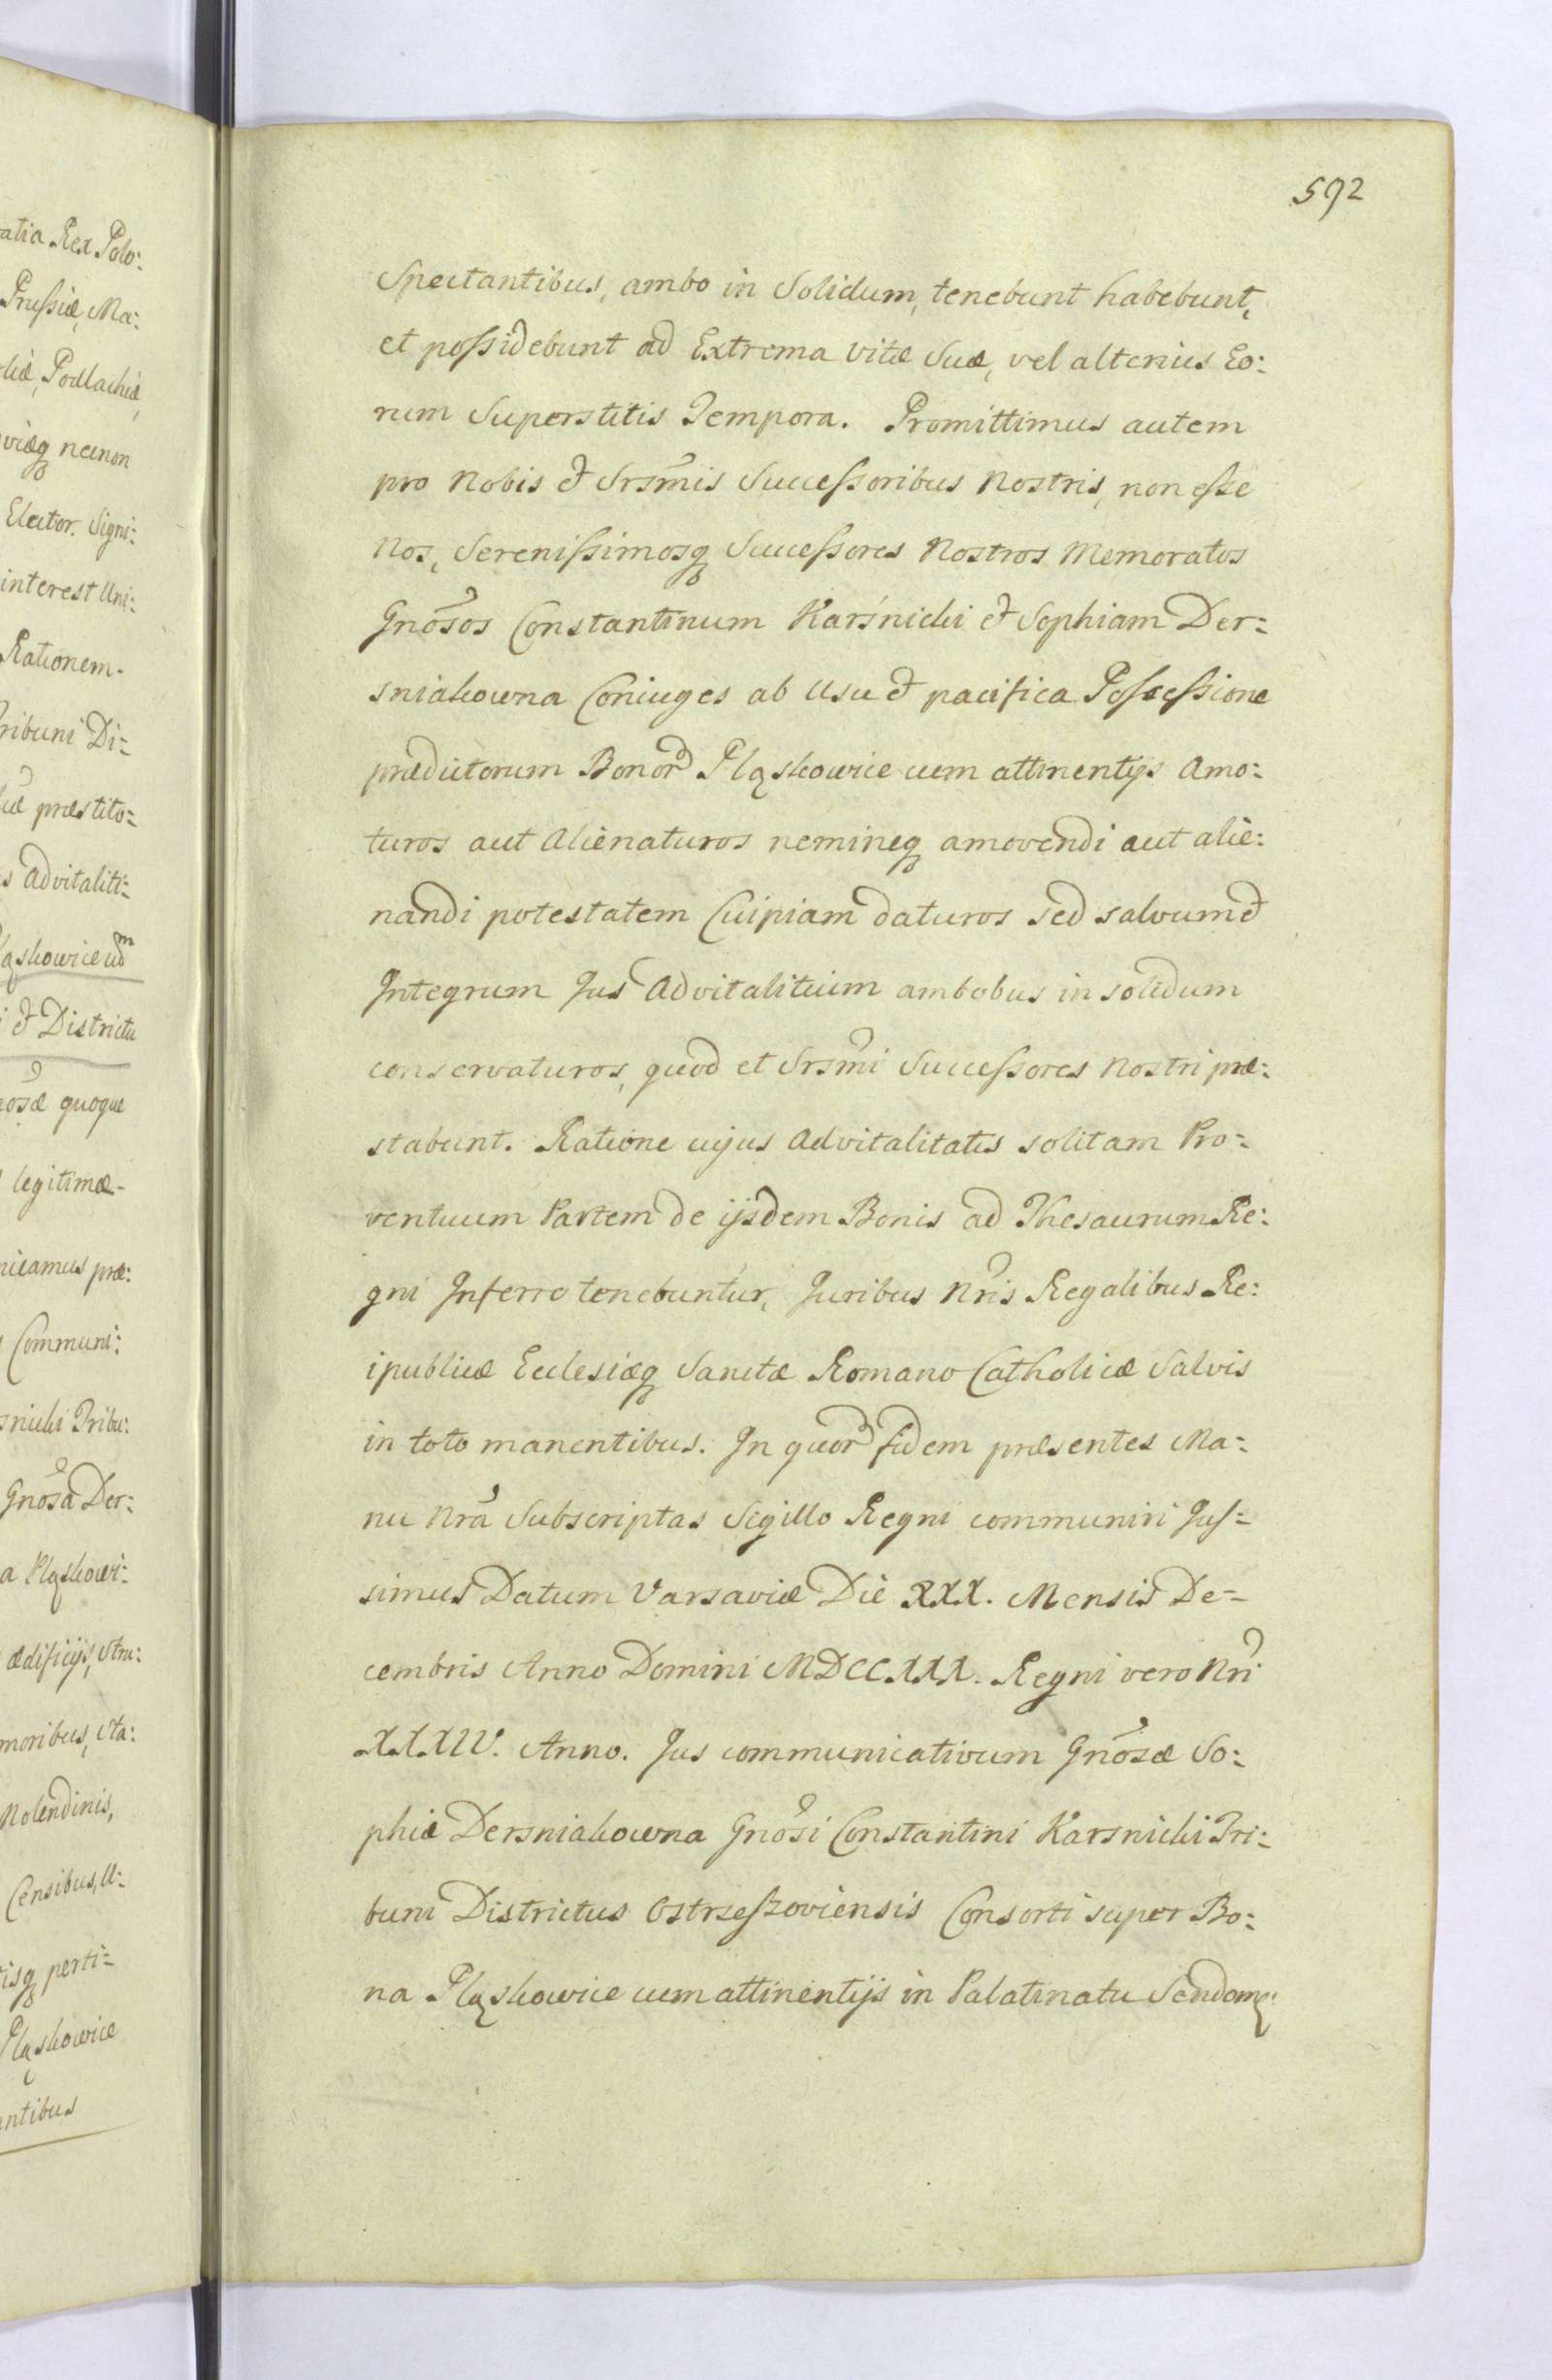 atia Rex Polo:
Prussiæ, Ma:
liæ, Podlachiæ,
viæq necnon
Elector. Signi:
interest Uni:
Rationem-
ribuni Di-
præstito=
s advitaliti-
ąskowice cum
i et Districtu
osæ quoque
legitimæ-
nicamus præ:
Communi:
snicki Tribu:
Gnosa Der:
a Pląskowi-
ædificijs, Stru:
moribus, Sta:
Molendinis,
Censibus, U-
isq perti-
Pląskowice
antibus
592
Spectantibus, ambo in Solidum, tenebunt habebunt,
et possidebunt ad Extrema vitæ suæ, vel alterius Eo:
rum Superstitis Tempora. Promittimus autem
pro Nobis et Srsmis Successoribus Nostris, non esse
Nos, Serenissimosq Successores Nostros Memoratos
Gnosos Constantinum Karśnicki et Sophiam Der=
sniakowna Coniuges ab usu et pacifica Possessione
prædictorum Bonor Pląskowice cum attinentijs Amo:
turos aut Alienaturos nemineq amovendi aut alie:
nandi potestatem Cuipiam daturos sed salvum et
Integrum Jus Advitalitium ambobus in solidum
conservaturos, quod et Srsmi Successores Nostri præ:
stabunt. Ratione cujus Advitalitatis solitam Pro=
ventuum Partem de ijsdem Bonis ad Thesaurum Re:
gni Inferre tenebuntur, Juribus Nris Regalibus Re:
ipublicæ Ecclesiæq Sanctæ Romano Catholicæ Salvis
in toto manentibus. In quor fidem præsentes Ma=
nu Nra Subscriptas Sigillo Regni communiri Jus=
simus Datum Varsaviæ Die XXX. Mensis De=
cembris Anno Domini MDCCXXX. Regni vero Nri
XXXIV. Anno. Jus communicativum Gnosæ So:
phiæ Dersniakowna Gnosi Constantini Karsnicki Tri:
buni Districtus Ostrzeszoviensis Consorti super Bo:
na Pląskowice cum attinentijs in Palatinatu Sendom: